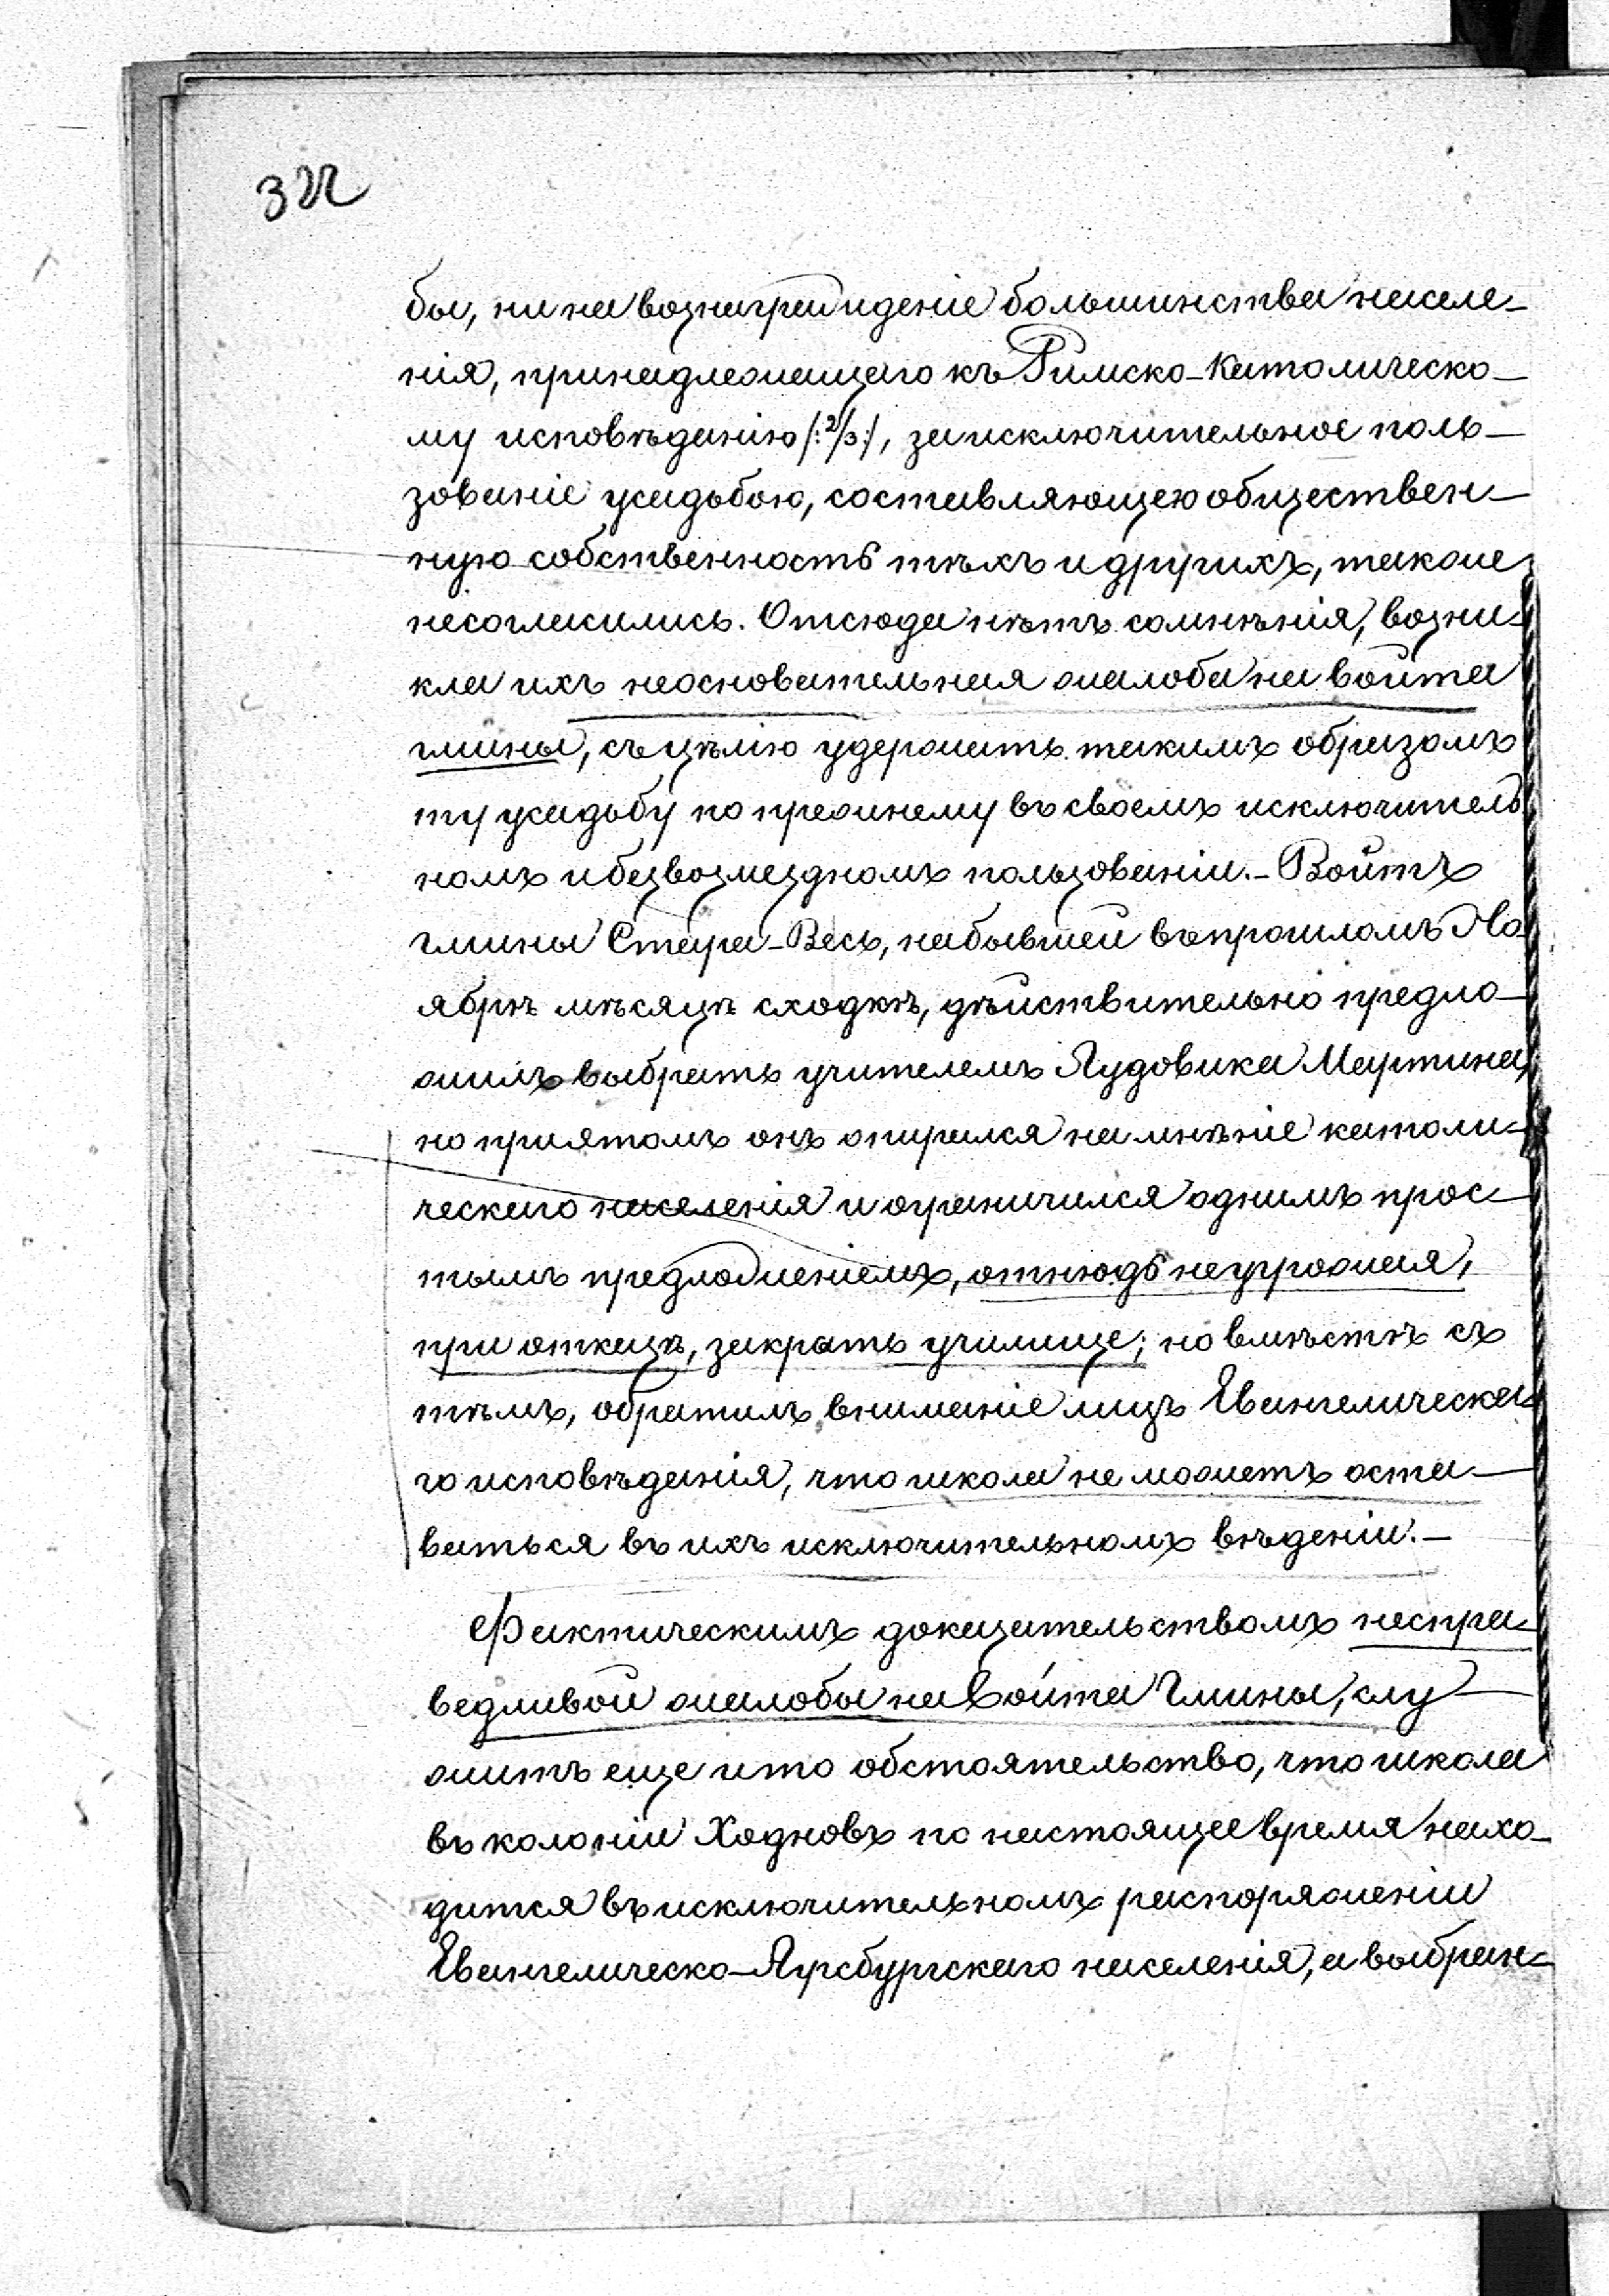 322
бы, ни на вознагражденіе большинства населе-
нія, принадлежащаго къ Римско-Католическо-
му исповѣданію /:2/3:/, за исключительное поль-
зованіе усадьбою, составляющею обществен-
ную собственность тѣхъ и другихъ, также
несогласились. Отсюда нѣтъ сомнѣнія, возни-
кла ихъ неосновательная жалоба на войта
гмины, съ цѣлію удержать такимъ образомъ
ту усадьбу по прежнему въ своемъ исключитель
номъ и безвозмездномъ пользованіи.- Войтъ
гмины Стара-Весь, на бывшей въ прошломъ Но-
ябрѣ мѣсяцѣ сходкѣ, дѣйствительно предло-
жилъ выбрать учителемъ Лудовика Мартина,
но приятомъ онъ опирался на мнѣніе католи-
ческаго населенія и ограничился однимъ прос-
тымъ предложеніемъ, отнюдь не угрожая,
при отказѣ, закрать училище; но вмѣстѣ съ
тѣмъ, обратилъ вниманіе лицъ Евангелическа-
го исповѣданія, что школа не можетъ оста-
ваться въ ихъ исключительномъ вѣденіи.-
Фактическимъ доказательствомъ неспра-
ведливой жалобы на Войта Гмины, слу-
житъ еще и то обстоятельство, что школа
въ колоніи Ходновъ по настоящее время нахо-
дится въ исключительномъ распоряженіи
Евангелическо-Аугсбургскаго населенія, а выбран-